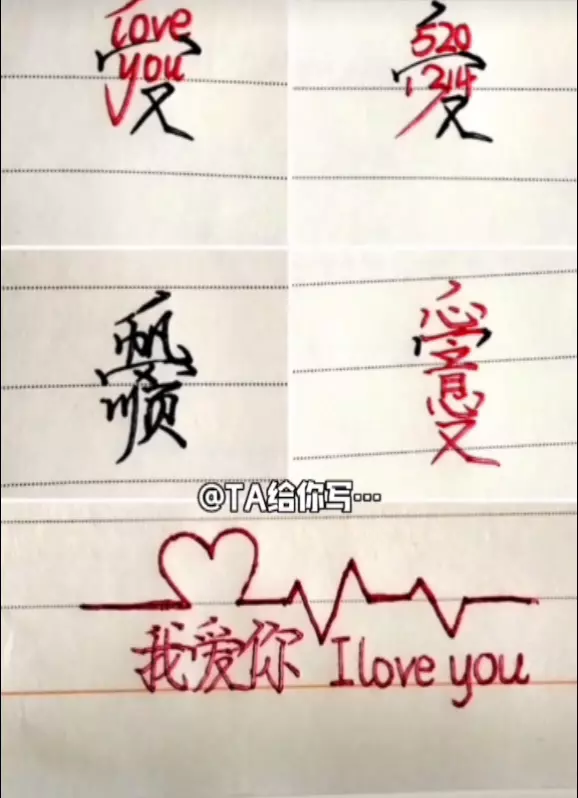 love
you
又
520
1314
又
帆
顺
心
意
又
@TA给你写…
我爱你 I love you